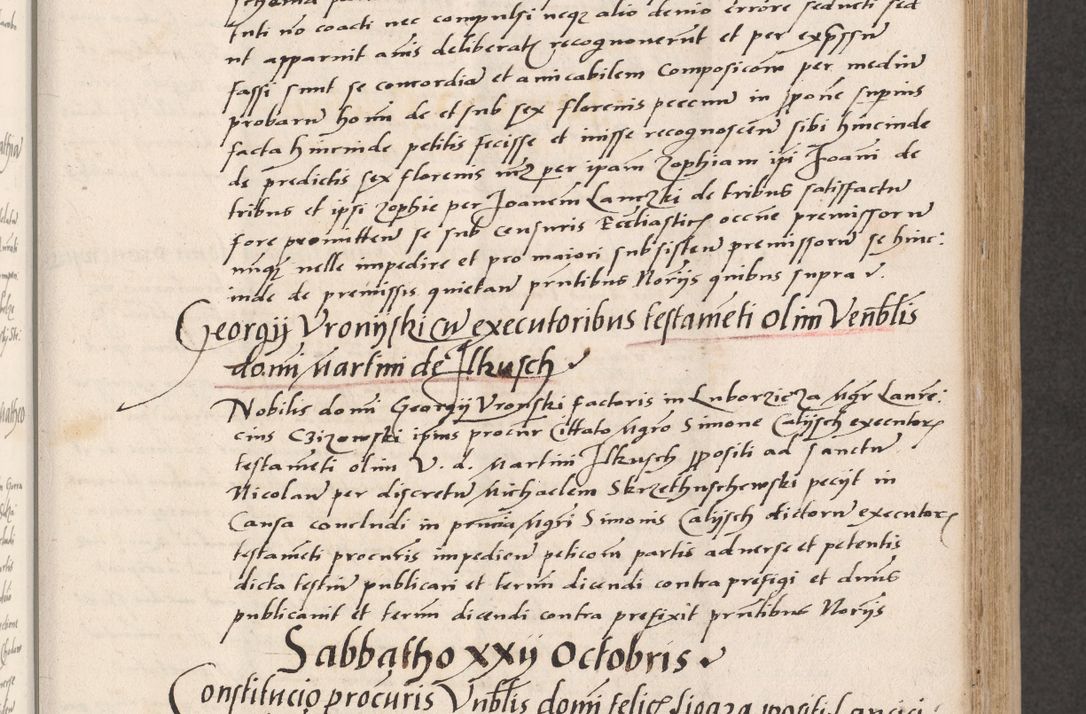 tuti no coacti nec compulsi neqz alio denio errore seducti sed
ut apparuit anis deliberatz recognoverut et per expssu
fassi sunt se concordia et amicabilem Composicoem per mediu
probaru homi de et sub sex florenis pecun in spone superius
facta hincinde petitis fecisse et inisse recognoscen sibi hincinde
de predictis sex florenis inqz per ipam Zophiam ipi Joani de
tribus et ipsi Zophie per Joanem Lanczki de tribus satisfactu
fore promitten se sub censuris Eccliasticis occne premissoru
nuqz velle impedire et pro maiori subsisten premissoru se hinc:
inde de premissis quietan pntibus Norijs quibus supra
Georgij Vronijski cu executoribus testameti olim Venblis
domi Martini de Ilkusch
Nobilis domi Georgij Vronski factoris in Luborzicza Mgr Laure:
cius Czizowski ipius procur Cittato Mgro Simone Calijsch executor
testameti olim V. d. Martini Ilkusch ppositi ad sanctu
Nicolau per discretu Michaelem Skrzethuschewski pecijt in
Causa concludi in pntia Mgri Simonis Calijsch dictoru executor
testameti procuris impedien peticom partis adverse et petentis
dicta testiu publicari et termi dicendi contra prefigi et dnus
publicavit et termi dicendi contra prefixit pntibus Norijs
Sabbatho xxij Octobris
Constitucio procuris Vnblis domi felicis